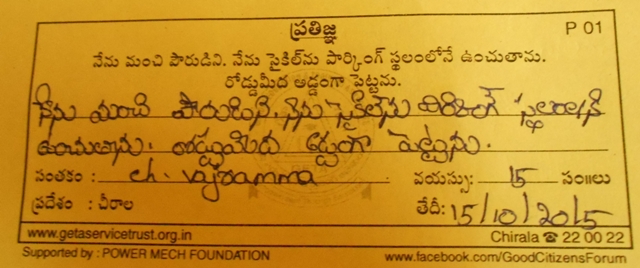 ప్రతిజ్ఞ P 01
నేను మంచి పౌరుడిని. నేను సైకిల్‌ను పార్కింగ్ స్థలంలోనే ఉంచుతాను.
రోడ్డుమీద అడ్డంగా పెట్టను.
నేను మంచి పౌరుడిని. నేను సైకిల్‌ను
ఉంచుతాను. రోడ్డుమీద అడ్డంగా పెట్టను.
సంతకం : ch. vajramma వయస్సు: 15 సం॥లు
ప్రదేశం : చీరాల తేదీ: 15/10/2015
www.getaservicetrust.org.in Chirala ☎ 22 00 22
Supported by : POWER MECH FOUNDATION www.facebook.com/GoodCitizensForum